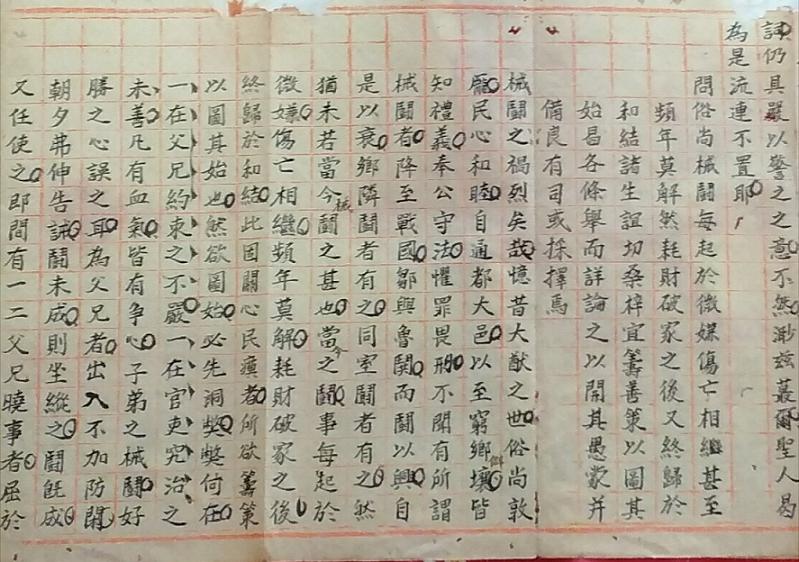 詞仍具嚴以警之之意不然渺茲蕞爾聖人曷
為是流連不置耶
問俗尚械鬪每起於微嫌傷亡相繼甚至
頻年莫解然耗財破家之後又終歸於
和結諸生誼切桑梓宜籌善策以圖其
始曷各條舉而詳論之以開其愚蒙并
備良有司或採擇焉
械鬪之禍烈矣哉憶昔大猷之世俗尚敦
龎民心和睦自通都大邑以至窮鄉僻壤皆
知禮義奉公守法懼罪畏刑不聞有所謂
械鬪者降至戰國鄒與魯鬨而鬪以興自
是以衰鄉隣鬪者有之同室鬪者有之然
猶未若當今械鬪之甚也當今之鬪事每起於
微嫌傷亡相繼頻年莫解耗財破家之後
終歸於和結此固關心民瘼者所欲籌策
以圖其始也然欲圖始必先洞弊弊何在
一在父兄約束之不嚴一在官吏究治之
未善凡有血氣皆有争心子弟之械鬪好
勝之心誤之耳為父兄者出入不加防閑
朝夕弗伸告誡鬪未成則坐縱之鬪旣成
又任使之即間有一二父兄曉事者屈於